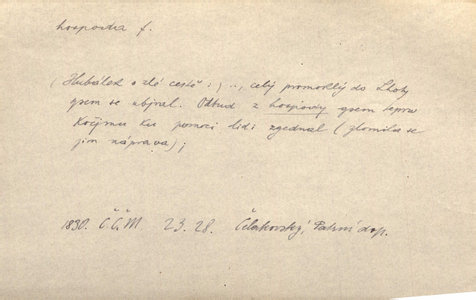 hospoda f.
(Hlubálek o zlé cestě:) .., celý promoklý do Lhoty
gsem se ubjral. Odtud z hospody gsem teprw
Kočjmu ku pomoci lidi zgednal (zlomila se
jim náprava);
1830. Č.Č.M. 23. 28. Čelakovský, Patrní dop.